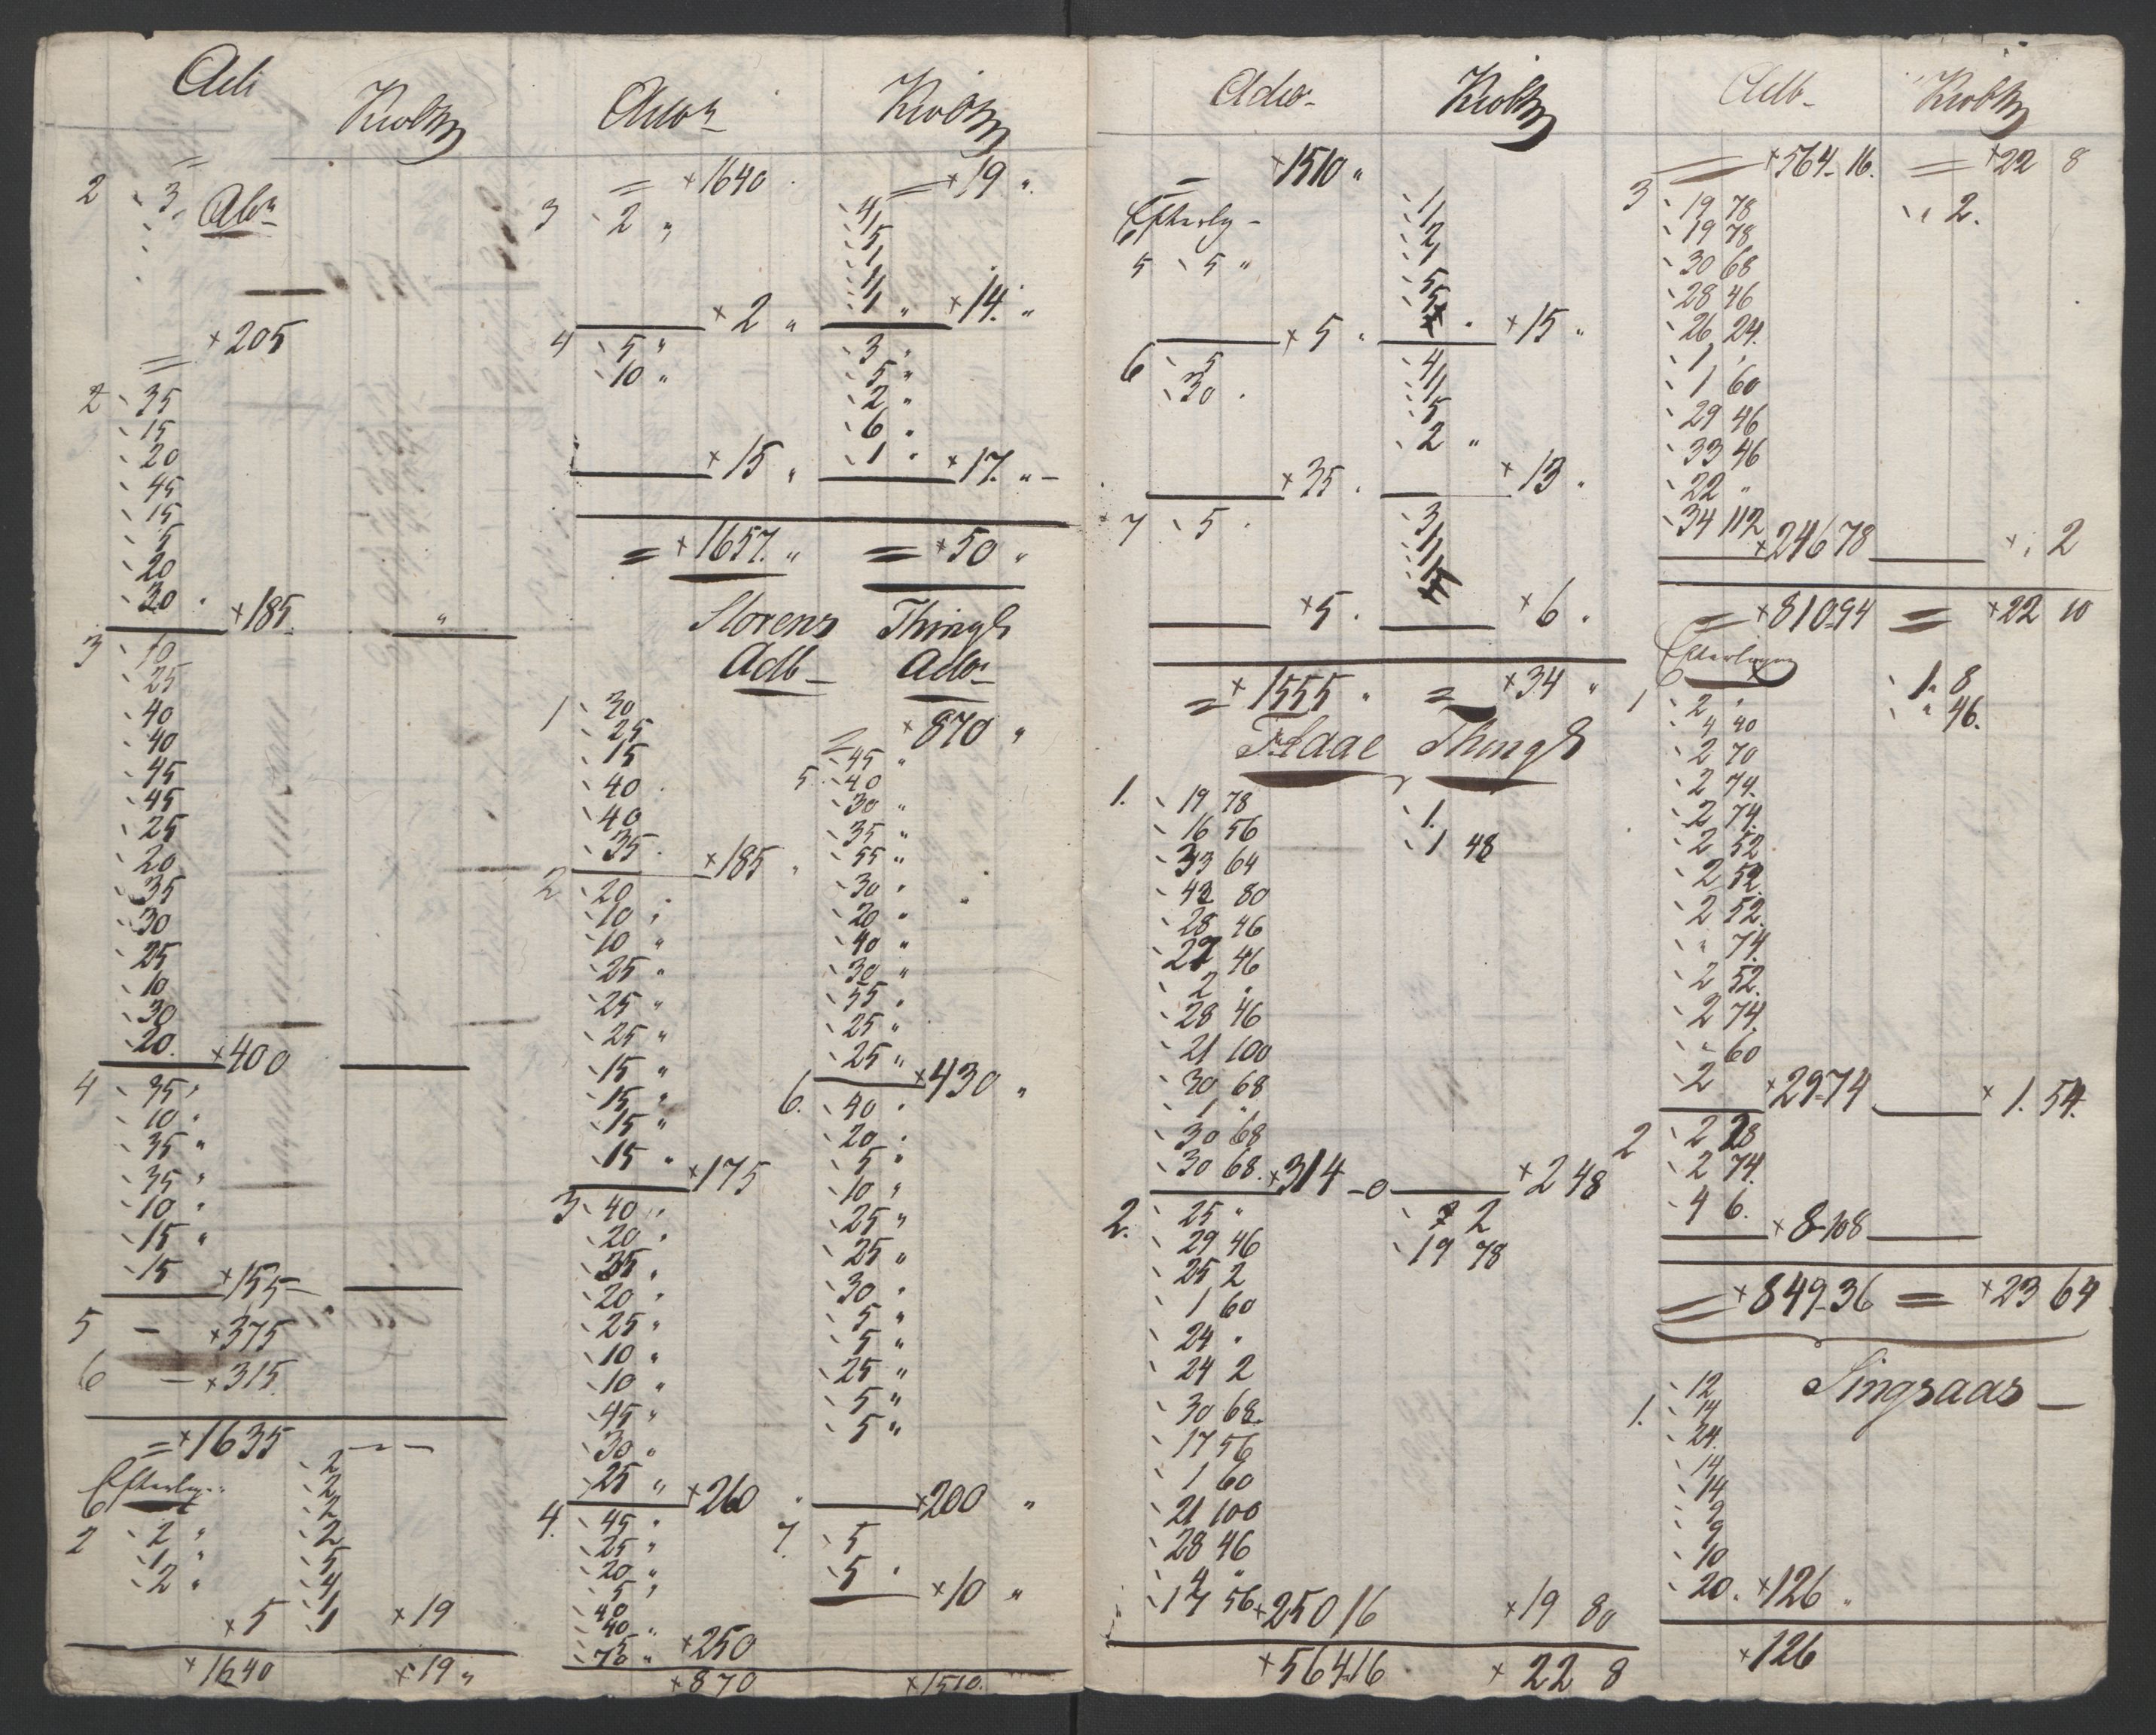 Adb
Kiøbm
2 3 Abm
+205
2 35
15
20
45
15
5
20
30 . +185 "
3 10
25
40
40
45
45
25
20
35
30
25
10
30
20. +400
4 35 "
10 "
35 "
35 "
10 "
15 "
15 +155 -
5 - +375
6 - +315.
= +1635 - - -
2
Efterleg.. 2
2
2 2 " 2
1 " 5
2 " 4
+5 1 +19
+1640 +19 "
Kiøbm
= +1640 . = +19 "
3 2 " 4
5
1
1
1
1
+2 " 1 " +14. "
4 5 " 3 "
10 " 5 "
2 "
6 "
+15 " 1 " +17. " -
= +1657. " = +50 "
Storens Thingl
Adb
1 30
25
15
40
40
35 . +185 "
2 20 .
10 "
10 "
25 "
25 "
25 "
15 "
15 "
15 "
15 " +175
3 40 "
20 "
35 "
20 "
25 "
10 "
10 "
45 "
30 "
25 " +260 "
4. 45 "
25 "
20 "
5 "
40
40 "
75 " +250
+870
= +870 "
5 45 "
40
30 "
35 "
55 "
30 "
20 "
40 "
30 "
55 "
25 "
25 " +430 "
6. 40 "
20 "
5 "
10 "
25 "
25 "
30 "
5 "
5 "
25 "
5 "
5 "
+200 "
7. 5
5 " +10 "
+1510.
Kiøbm
= +1510 " 1
Efterleg - 1
2
5 5 " 1
5
5
+5 " +15 "
6 5 4
30 . 1
1
5
2 "
+35 . +13 "
7 5 . 3
1
1
1
+5 . +6 .
= +1555 " = +34 "
Haae Thingl
1. 19 78 1.
16 56 1 48
33 64
42 80
28 46
27 46
2 "
28 46
21 100
30 68
1 "
30 68
30 68. +314 - 0 +2 48
2. 25 " 2 2
29 46 19 78
25 2
1 60
24 "
24 2
30 68.
17 56
1 60
21 100
28 46
4 "
17 56 +250 16 +19 80
+564 16 . +22 8
Adb
Kiøbm
= +564-16. = +22 8
3 19 78 " 2.
19 78
30 68
28 46
26 24.
1 "
1 60
29 46
33 46
22 "
34 112 +246 78 + " 2
= +810 94 = +22 10
Efterlegn
1 2 " 1. 8
4 40 " 46.
2 70
2 74.
2 74.
2 52
2 52.
2 52.
" 74.
2 52.
2 74.
" 60
2 +29 74 +1. 54.
2 2 28
2 74.
4 6. +8-108
= +849-36 = +23 64
Singsaas -
1. 12
14
24.
14
14
9
9
10
20 . +126 "
+126